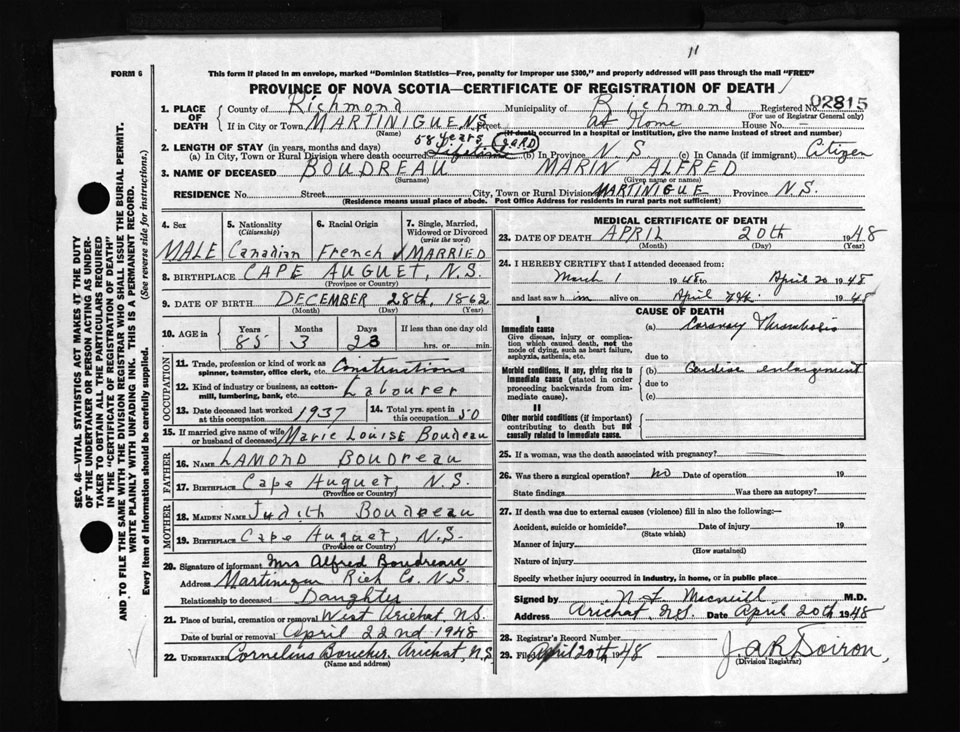 11
FORM 6
This form if placed in an envelope, marked "Dominion Statistics—Free, penalty for improper use $300," and properly addressed will pass through the mail "FREE"
PROVINCE OF NOVA SCOTIA—CERTIFICATE OF REGISTRATION OF DEATH
1. PLACE OF DEATH County of Richmond Municipality of Richmond Registered No. 02815
(For use of Registrar General only)
If in City or Town MARTINIGUE N.S. Street at Home House No. —
(Name) (If death occurred in a hospital or institution, give the name instead of street and number)
58 years
2. LENGTH OF STAY (in years, months and days)
(a) In City, Town or Rural Division where death occurred Lifetime (b) In Province N.S. (c) In Canada (if immigrant) Citizen
3. NAME OF DECEASED BOUDREAU MARIN ALFRED
(Surname) (Given name or names)
RESIDENCE No. Street City, Town or Rural Division MARTINIGUE Province N.S.
(Residence means usual place of abode. Post Office Address for residents in rural parts not sufficient)
4. Sex 5. Nationality (Citizenship) 6. Racial Origin 7. Single, Married, Widowed or Divorced (write the word)
MALE Canadian French MARRIED
8. BIRTHPLACE CAPE AUGUET, N.S.
(Province or Country)
9. DATE OF BIRTH DECEMBER 28th, 1862
(Month) (Day) (Year)
10. AGE in Years Months Days If less than one day old
85 3 23 hrs. or min.
OCCUPATION
11. Trade, profession or kind of work as spinner, teamster, office clerk, etc. Constructions
12. Kind of industry or business, as cotton-mill, lumbering, bank, etc. Labourer
13. Date deceased last worked at this occupation 1937 14. Total yrs. spent in this occupation 50
15. If married give name of wife or husband of deceased Marie Louise Boudeau
FATHER
16. NAME LAMOND BOUDREAU
17. BIRTHPLACE Cape Auguet, N.S.
(Province or Country)
MOTHER
18. MAIDEN NAME Judith Boudreau
19. BIRTHPLACE Cape Auguet, N.S.
(Province or Country)
20. Signature of informant Mrs Alfred Boudreau
Address Martinique Rich Co. N.S.
Relationship to deceased Daughter
21. Place of burial, cremation or removal West Arichat, N.S.
Date of burial or removal April 22nd 1948
22. UNDERTAKER Cornelius Boucher. Arichat, N.S
(Name and address)
MEDICAL CERTIFICATE OF DEATH
23. DATE OF DEATH APRIL 20th 1948
(Month) (Day) (Year)
24. I HEREBY CERTIFY that I attended deceased from:
March 1 1948 to April 20 1948
and last saw him alive on April 1948
CAUSE OF DEATH
I
Immediate cause
Give disease, injury or complication which caused death, not the mode of dying, such as heart failure, asphyxia, asthenia, etc.
(a) Coronary Thrombosis
due to
Morbid conditions, if any, giving rise to immediate cause (stated in order proceeding backwards from immediate cause).
(b) Cardiac enlargement
due to
(c)
II
Other morbid conditions (if important) contributing to death but not causally related to immediate cause.
25. If a woman, was the death associated with pregnancy?
26. Was there a surgical operation? no Date of operation 19
State findings Was there an autopsy?
27. If death was due to external causes (violence) fill in also the following:—
Accident, suicide or homicide? Date of injury 19
(State which)
Manner of injury
(How sustained)
Nature of injury
Specify whether injury occurred in industry, in home, or in public place
Signed by N. F. Macneill M.D.
Address Arichat, N.S. Date April 20th 1948
28. Registrar's Record Number
29. Filed April 20th 1948 J.A.R. Doiron,
(Division Registrar)
SEC. 46—VITAL STATISTICS ACT MAKES IT THE DUTY
OF THE UNDERTAKER OR PERSON ACTING AS UNDER-
TAKER TO OBTAIN ALL THE PARTICULARS REQUIRED
IN THE "CERTIFICATE OF REGISTRATION OF DEATH"
AND TO FILE THE SAME WITH THE DIVISION REGISTRAR WHO SHALL ISSUE THE BURIAL PERMIT.
WRITE PLAINLY WITH UNFADING INK. THIS IS A PERMANENT RECORD.
Every Item of Information should be carefully supplied. (See reverse side for instructions.)